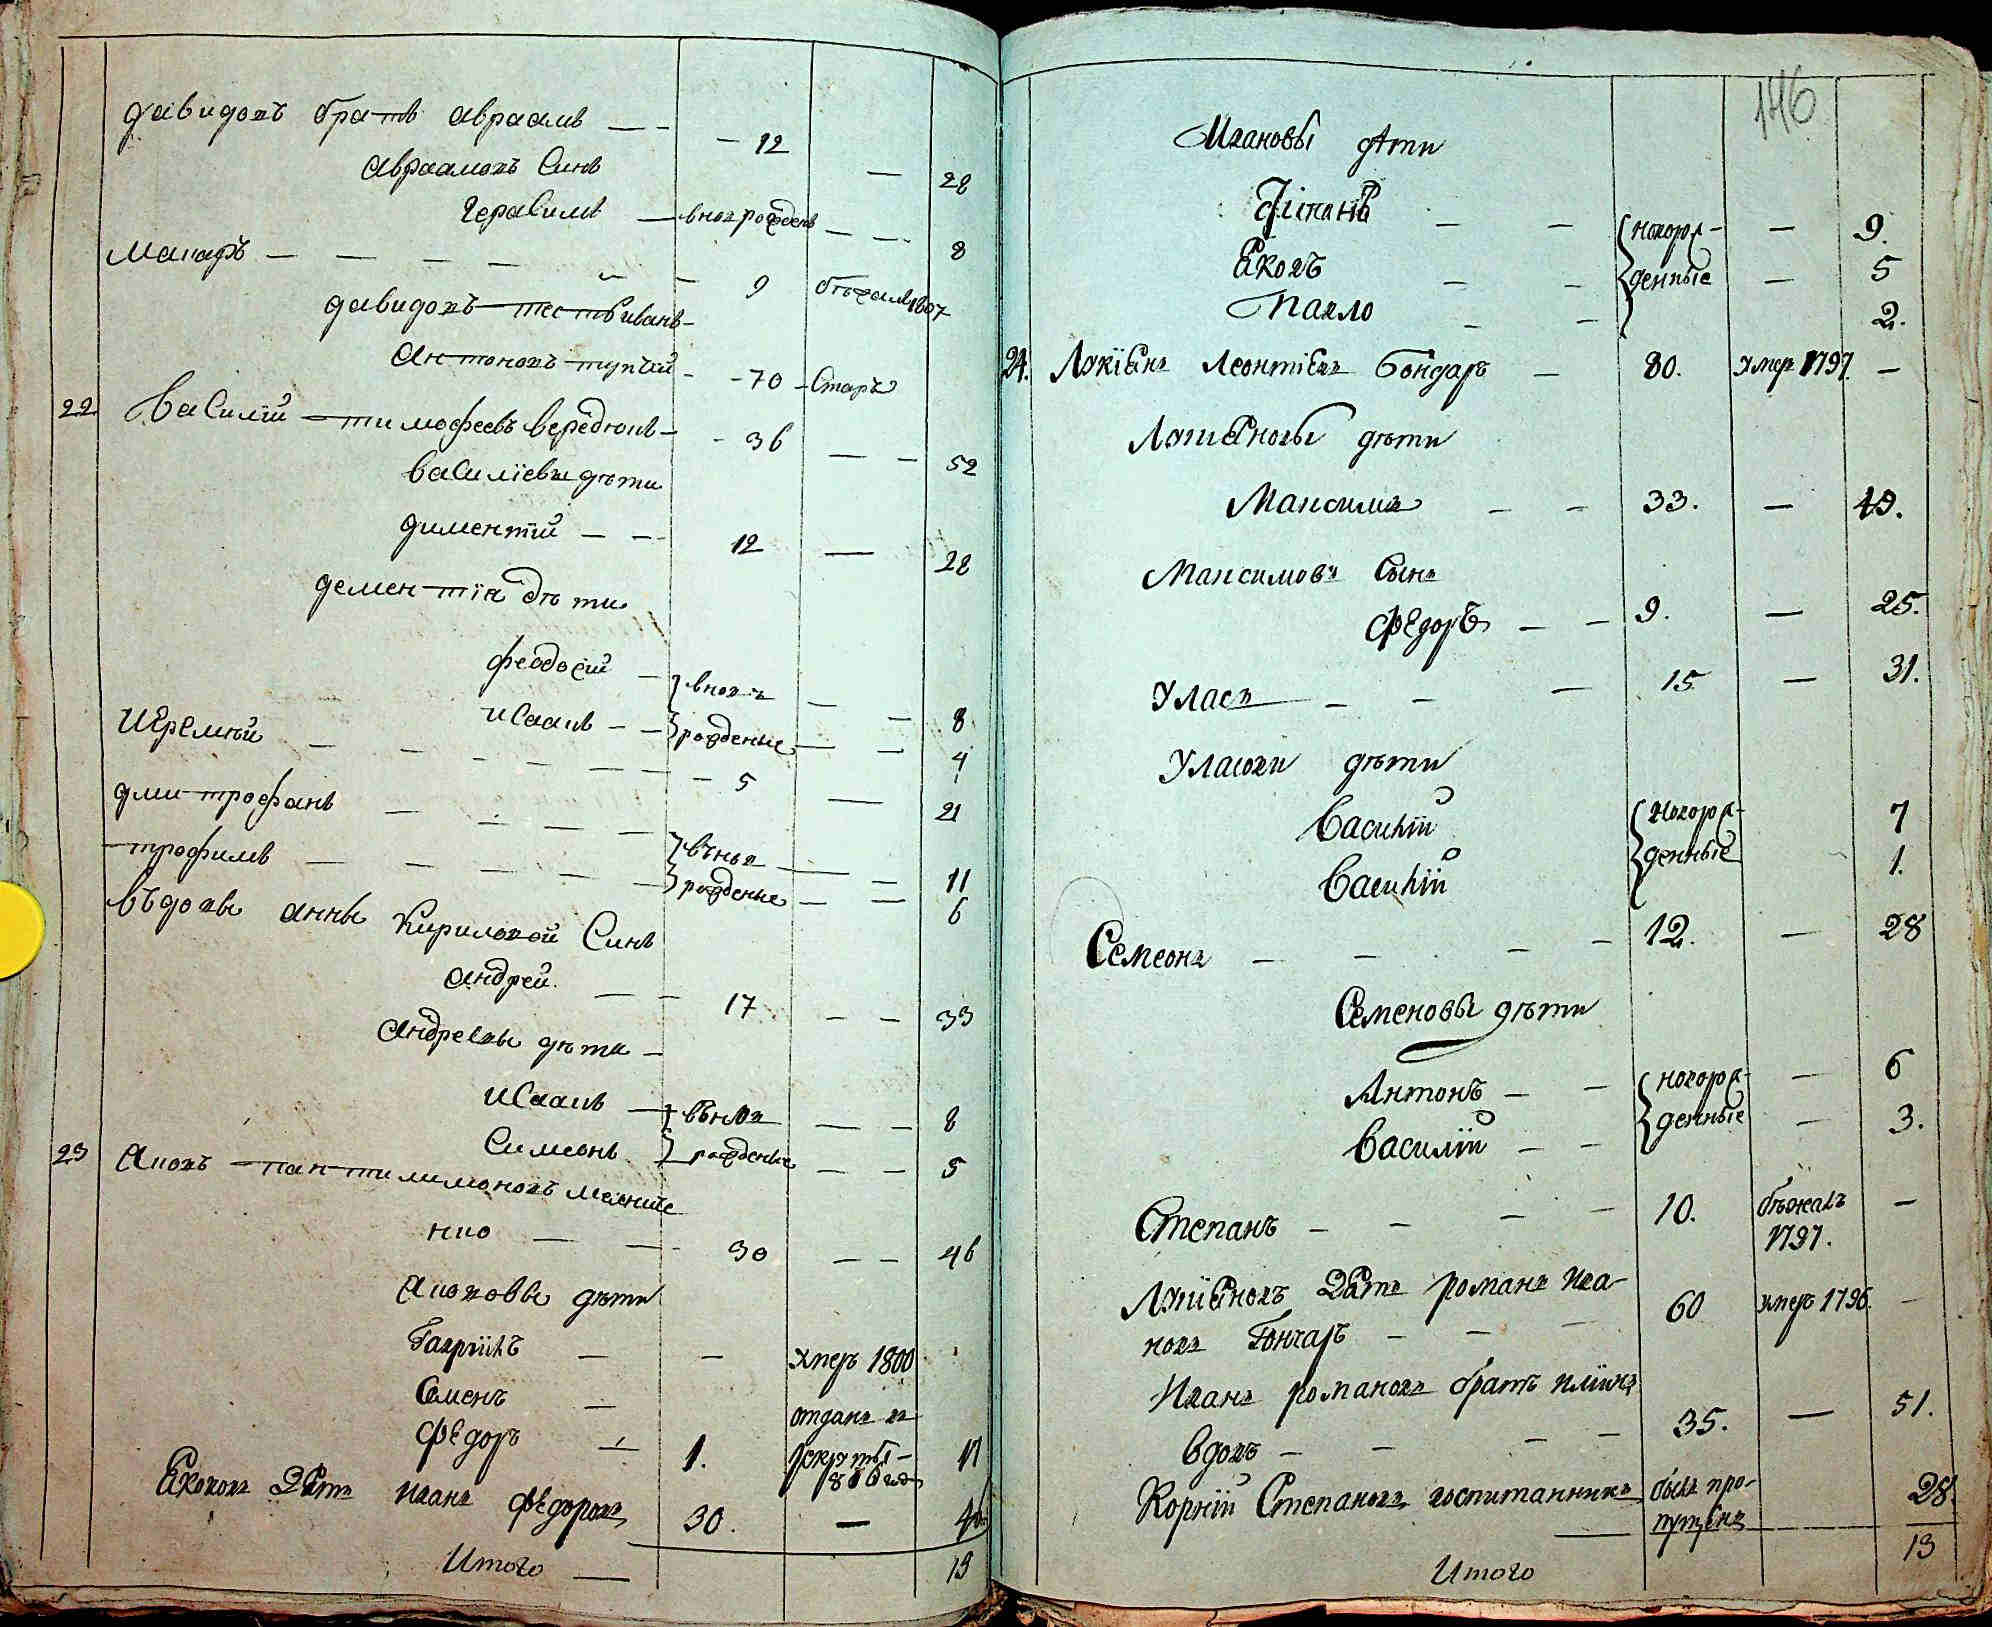 давидовъ братъ авраамъ — — 12 — 28
авраамовъ синъ
герасимъ — вновърожденъ — — 8
макаръ — — — — 9 бежалъ 1807
давидовъ тесть иванъ
антоновъ тупчий — 70 — старъ
22 василий тимофеевъ вередюкъ — 36 — — 52
василиевы дѣти
диментий — — 12 — 28
дементия дѣти
феодосий — вновъ — — 8
исаакъ — — рожденые — — 4
иеремѣй — — — 5 — 21
дмитрофанъ — — — — въновъ — — 11
трофимъ — — — рожденые — — 6
въдовы анны кириловой синъ
андрей — — 17 — — 33
андреевы дѣти —
исаакъ — въновъ — — 8
симеонъ рожденые — — 5
23 яковъ пантилимоновъ мелниче
нко — — 30 — — 46
яковови дѣти
Гаврїилъ — — умеръ 1800
Семенъ — отданъ в
Федоръ — 1. рекруты 17
Яковов зять Иванъ Федоров 30. — 46
Итого — 13
146
Ивановы дѣти
Яковъ — — новорож- — 9.
денные — 5
Павло — — 2.
24. Лукіянъ Леонтіевъ Бондаръ — 80. умер 1797. —
Лукіяновы дѣти
Максимъ — — 33. — 49.
Максимовъ сынъ
Федоръ — — 9. — 25.
Уласъ — — — 15 — 31.
Уласови дѣти
Василій новорож- 7
Василій денные 1.
Семеонъ — — — — 12. — 28
Семеновы дѣти
Антонъ — — новорож- — 6
Василій — — денные — 3.
Степанъ — — — — 10. бѣжалъ —
1797.
Лукіяновъ зять романъ Ива-
новъ Гончаръ — — — 60 умеръ 1796. —
Иванъ романовъ братъ
вдовъ — — — — 35. — 51.
Корній Степановъ воспитанникъ былъ про- 28.
пущенъ
Итого 13